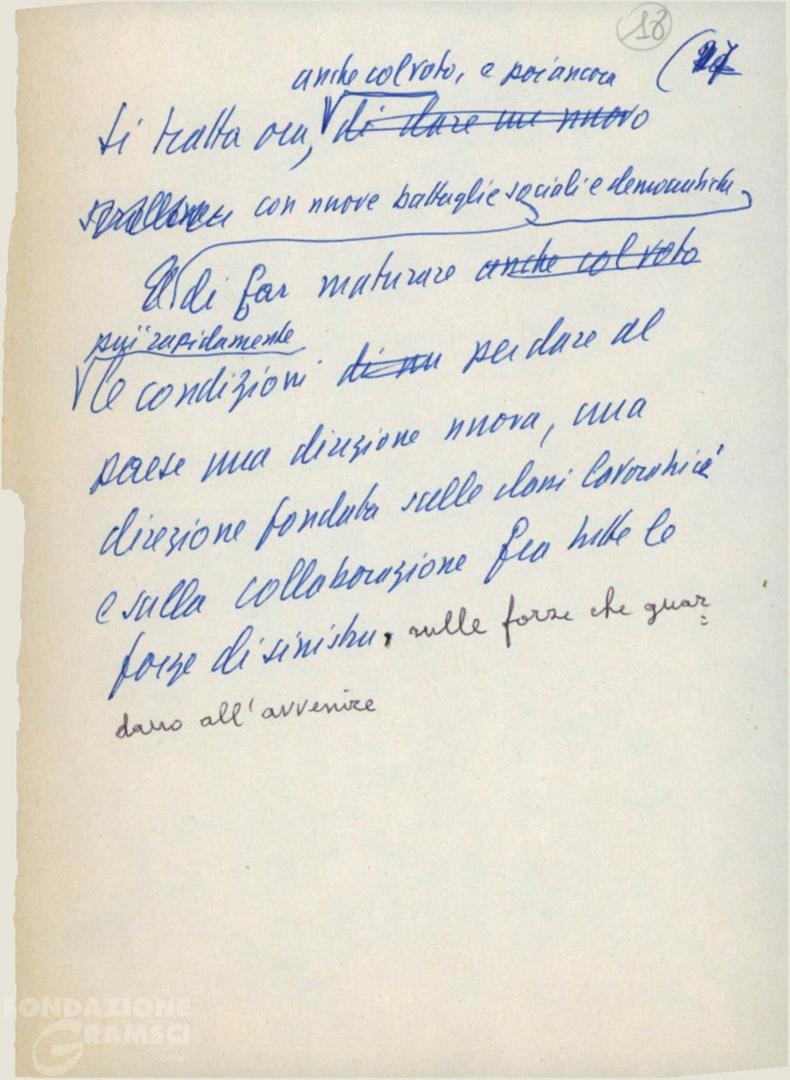 18
(27
anche col voto, e poi ancora
si tratta ora, di dare un nuovo
con nuove battaglie sociali e democratiche,
di far maturare anche col voto
più rapidamente
le condizioni di un per dare al
paese una direzione nuova, una
direzione fondata sulle classi lavoratrici
e sulla collaborazione fra tutte le
forze di sinistra, sulle forze che guar
dano all'avvenire
FONDAZIONE
GRAMSCI
onlus